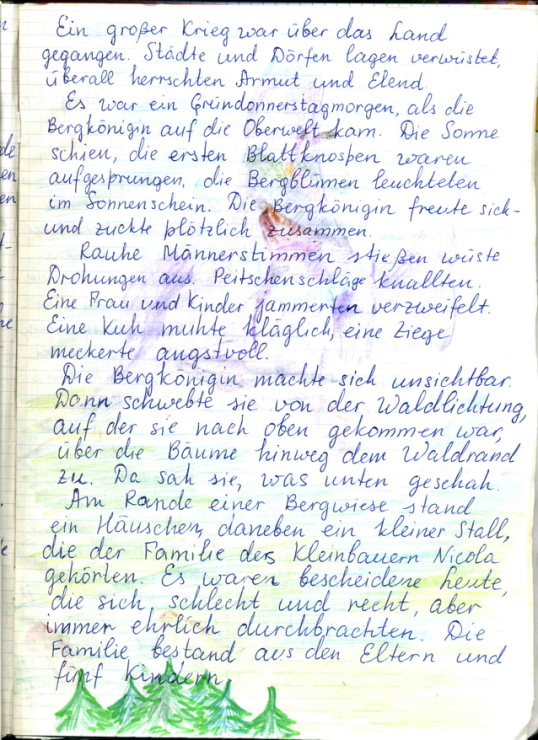 Ein großer Krieg war über das Land
gegangen. Städte und Dörfen lagen verwüstet,
überall herrschten Armut und Elend.
Es war ein Gründonnerstagmorgen, als die
Bergkönigin auf die Oberwelt kam. Die Sonne
schien, die ersten Blattknospen waren
aufgesprungen, die Bergblumen leuchteten
im Sonnenschein. Die Bergkönigin freute sich -
und zuckte plötzlich zusammen.
Rauhe Männerstimmen stießen wüste
Drohungen aus. Peitschenschläge knallten.
Eine Frau und Kinder jammerten verzweifelt.
Eine Kuh muhte kläglich, eine Ziege
meckerte angstvoll.
Die Bergkönigin machte sich unsichtbar.
Dann schwebte sie von der Waldlichtung,
auf der sie nach oben gekommen war,
über die Bäume hinweg dem Waldrand
zu. Da sah sie, was unten geschah.
Am Rande einer Bergwiese stand
ein Häuschen, daneben ein kleiner Stall,
die der Familie des Kleinbauern Nicola
gehörten. Es waren bescheidene Leute,
die sich, schlecht und recht, aber
immer ehrlich durchbrachten. Die
Familie bestand aus den Eltern und
fünf Kindern.